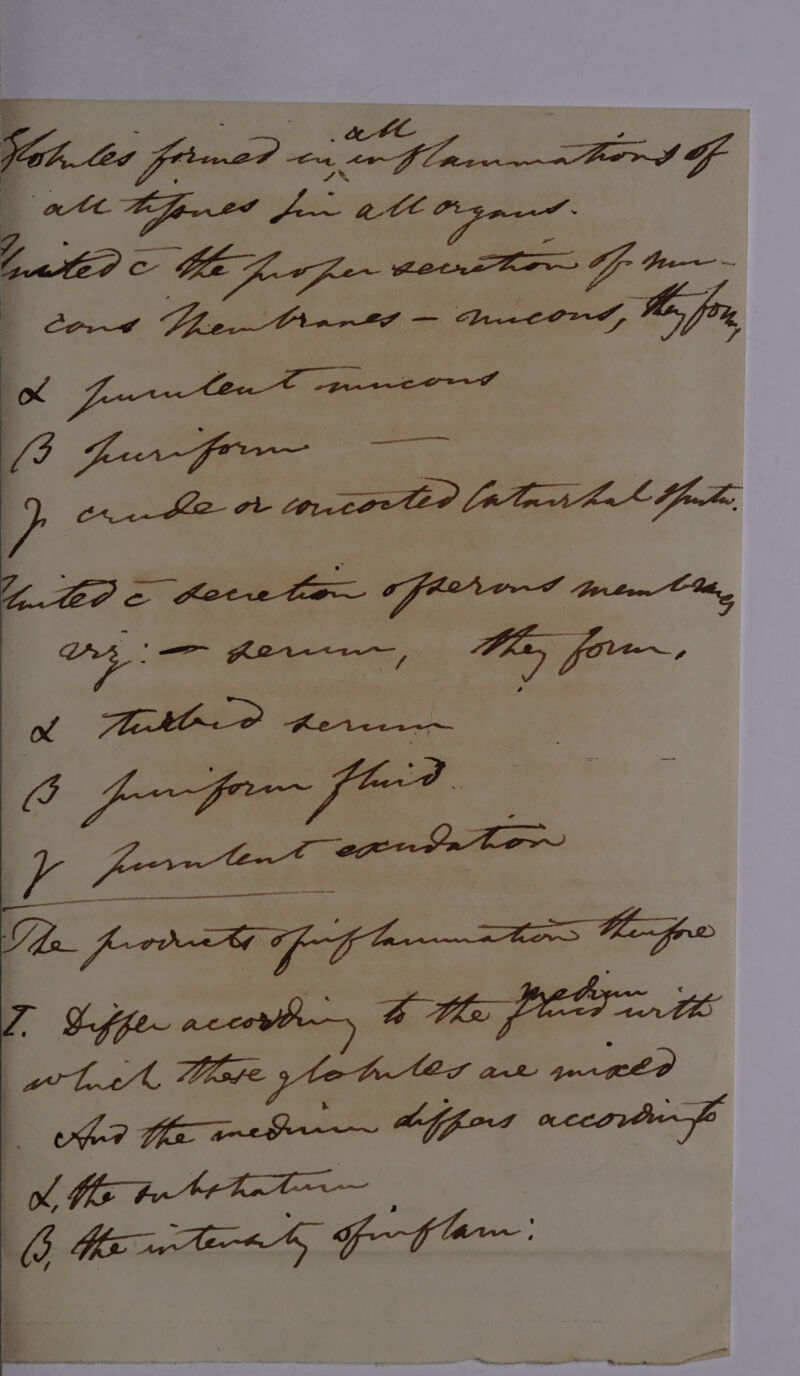 Globules formed in all inflammations of
all tissues & in all organs.
United c̄ the proper secretion of mu-
cous Membranes – mucous, they form,
α purulent mucous
β puriform —
γ crude or concocted Catarrhal sputa.
United c̄ secretion of serous membranes
viz: – serum, they form,
α turbid serum
β puriform fluid
γ purulent exudation
The products of inflammation therefore
I. Differ according to the fluid medium with
which these globules are mixed
And the medium differs according to
α, the substratum
β, the intensity of inflam: